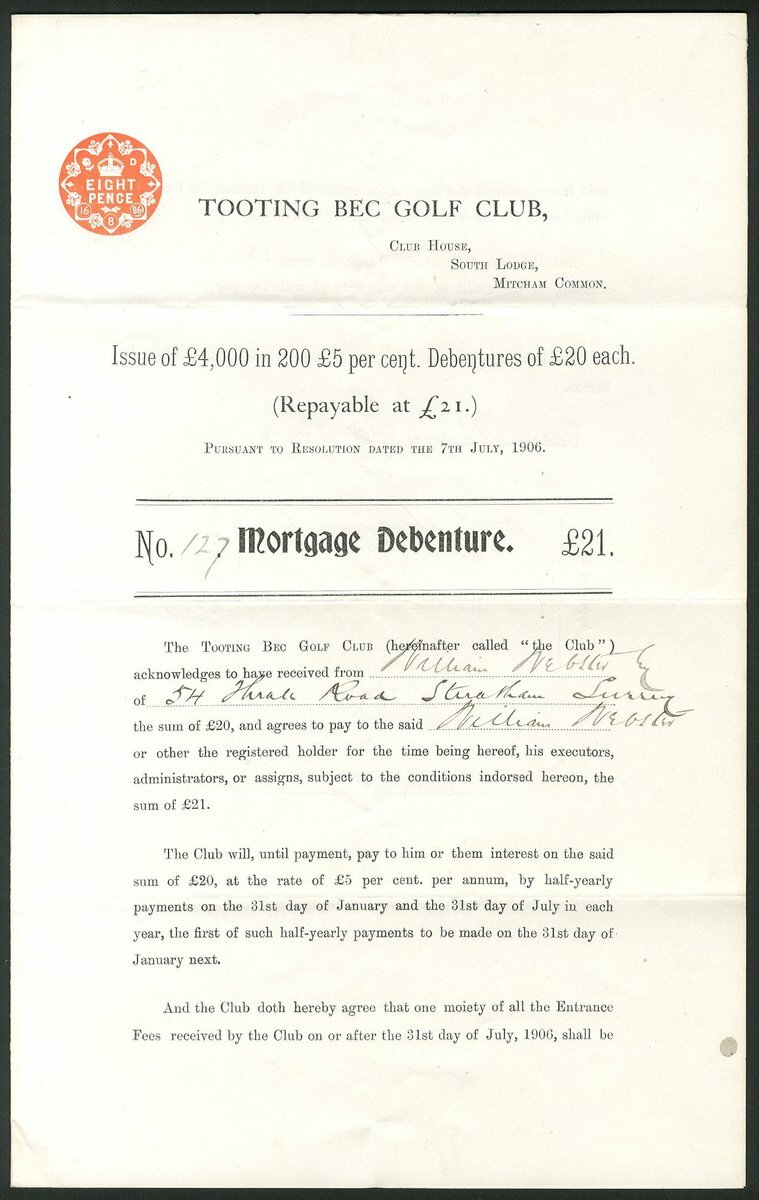 D
EIGHT
PENCE
16 8 06
TOOTING BEC GOLF CLUB,
CLUB HOUSE,
SOUTH LODGE,
MITCHAM COMMON.
Issue of £4,000 in 200 £5 per cent. Debentures of £20 each.
(Repayable at £21.)
PURSUANT TO RESOLUTION DATED THE 7TH JULY, 1906.
No. 127. Mortgage Debenture. £21.
The TOOTING BEC GOLF CLUB (hereinafter called "the Club")
acknowledges to have received from William Webster Esq
of 54 Thrale Road Streatham Surrey
the sum of £20, and agrees to pay to the said William Webster
or other the registered holder for the time being hereof, his executors,
administrators, or assigns, subject to the conditions indorsed hereon, the
sum of £21.
The Club will, until payment, pay to him or them interest on the said
sum of £20, at the rate of £5 per cent. per annum, by half-yearly
payments on the 31st day of January and the 31st day of July in each
year, the first of such half-yearly payments to be made on the 31st day of
January next.
And the Club doth hereby agree that one moiety of all the Entrance
Fees received by the Club on or after the 31st day of July, 1906, shall be